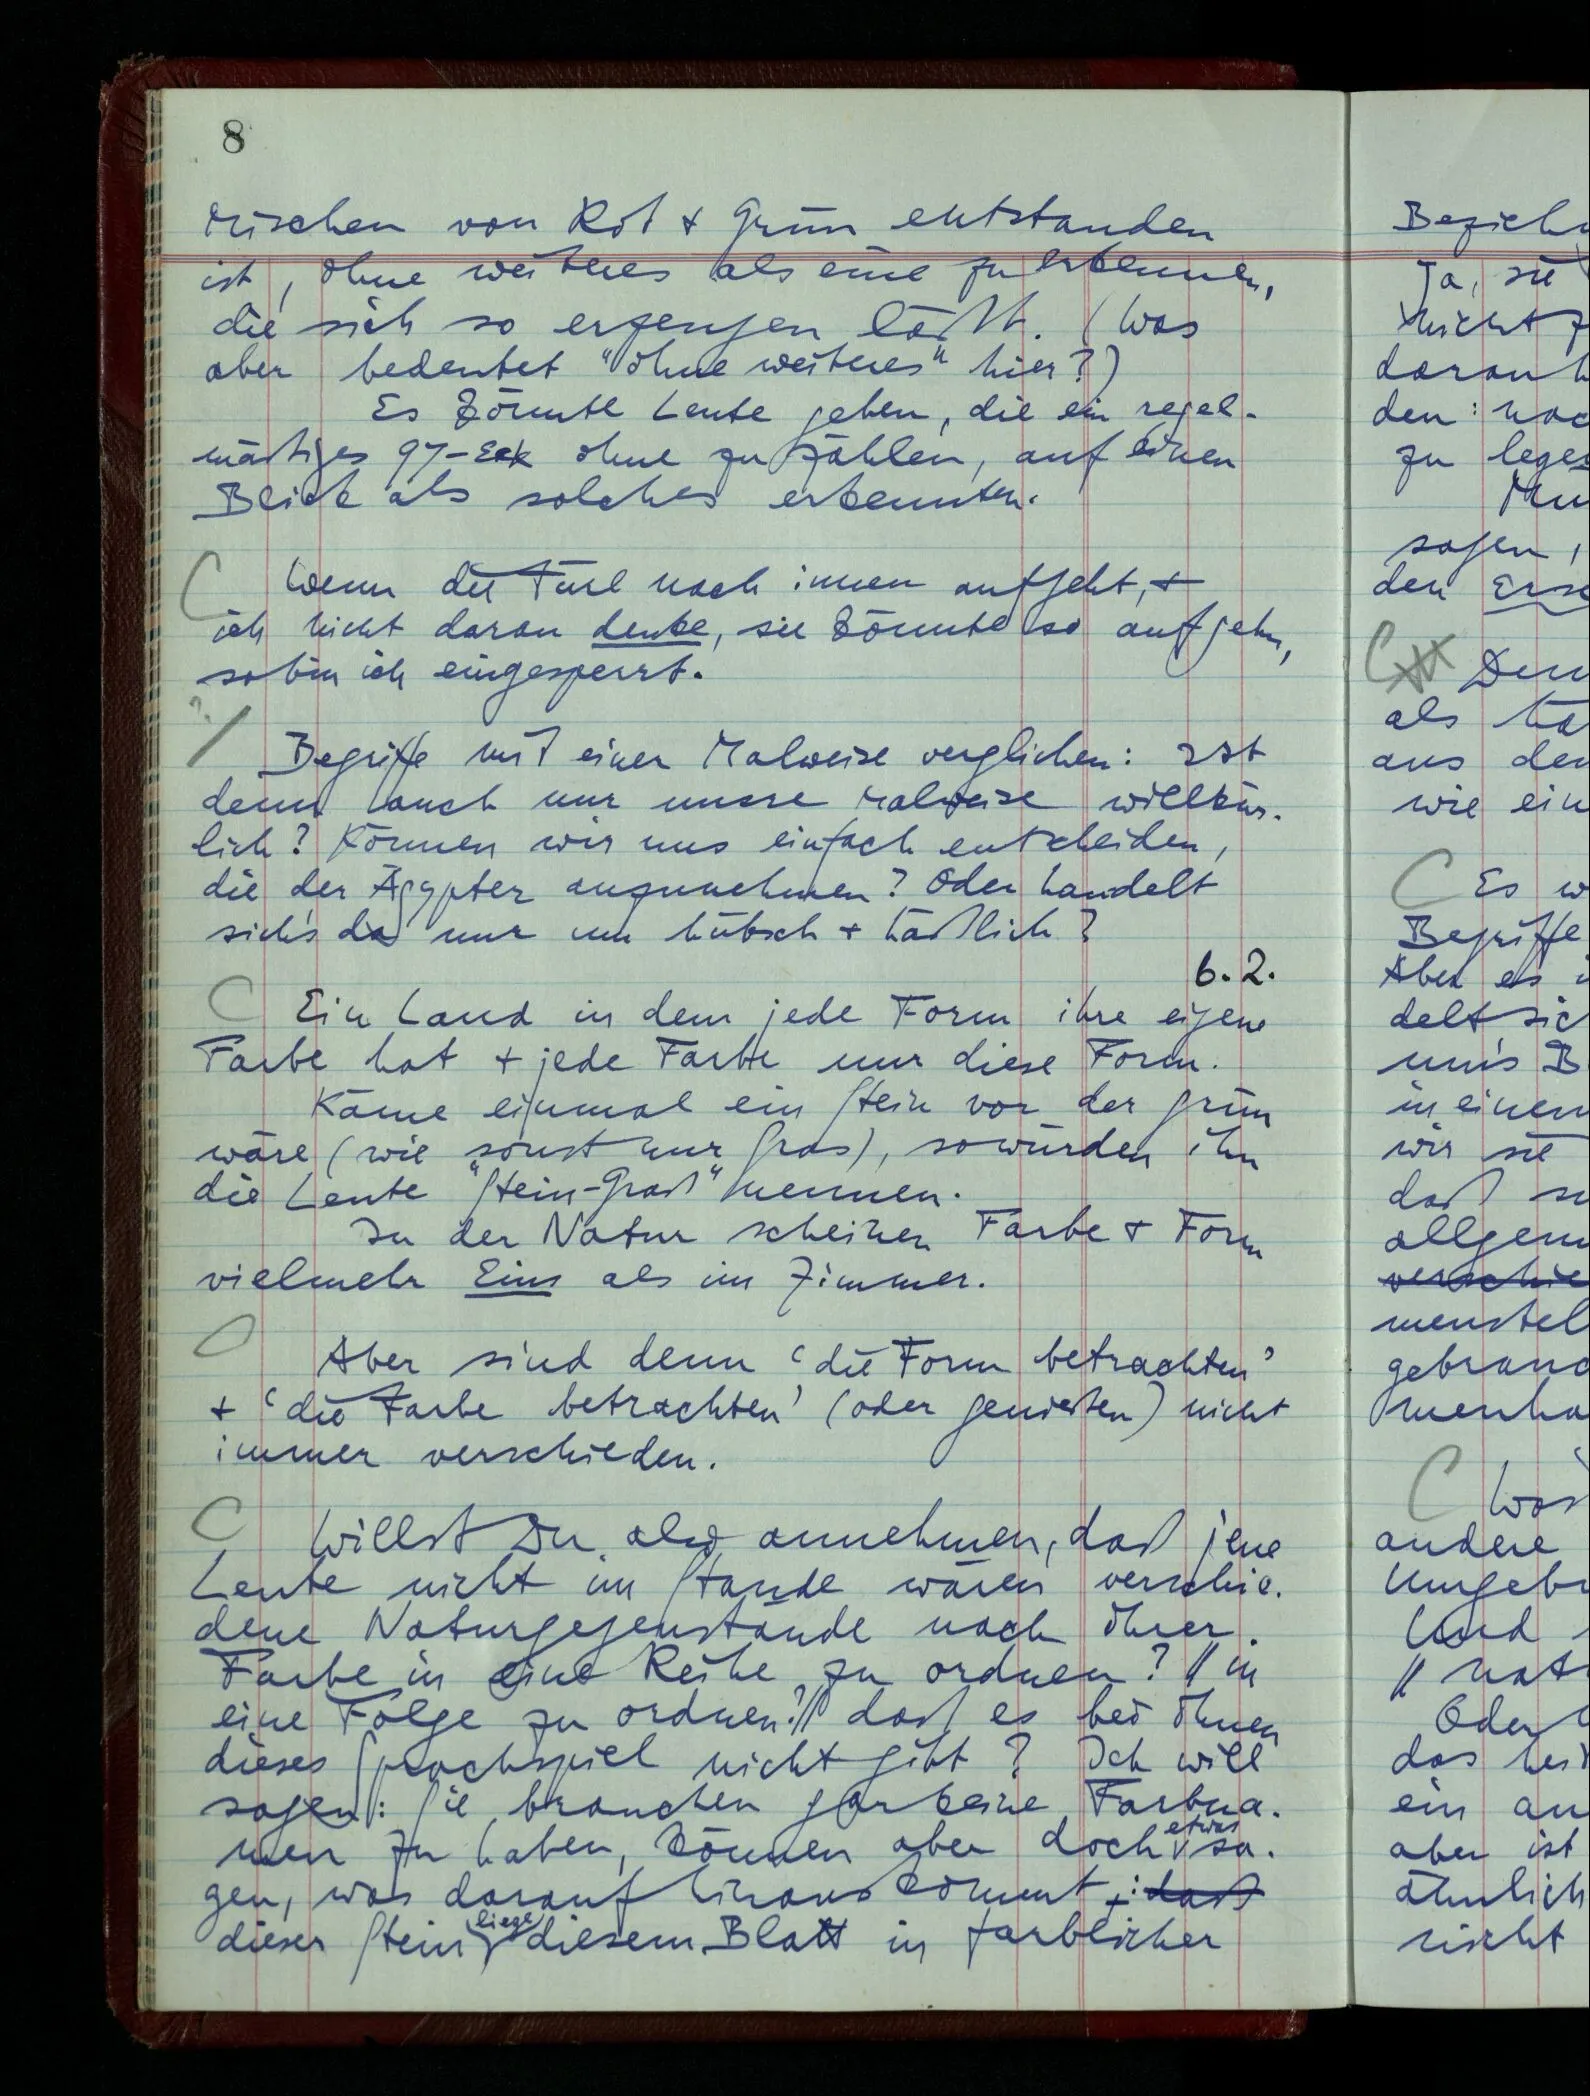 8
Mischen von Rot + Grün entstanden
ist, ohne weiteres als eine zu erkennen,
die sich so erzeugen läßt. (Was
aber bedeutet "ohne weiteres" hier?)
Es könnte Leute geben, die ein regel-
mäßiges 97-Eck ohne zu zählen, auf einen
Blick als solches erkennten.
C Wenn die Türe nach innen aufgeht, +
ich nicht daran denke, sie könnte so aufgehn,
so bin ich eingesperrt.
? /
Begriffe mit einer Malweise verglichen: Ist
denn auch nur unsre Malweise willkür-
lich? Können wir uns einfach entscheiden,
die der Ägypter anzunehmen? Oder handelt
sich's da nur um hübsch + häßlich?
6.2.
C Ein Land in dem jede Form ihre eigene
Farbe hat + jede Farbe nur diese Form.
Käme einmal ein Stein vor der grün
wäre (wie sonst nur Gras), so würden ihn
die Leute "Stein-Graß" nennen.
In der Natur scheinen Farbe + Form
vielmehr Eins als im Zimmer.
Aber sind denn 'die Form betrachten'
+ 'die Farbe betrachten' (oder genießen) nicht
immer verschieden.
C Willst Du also annehmen, daß jene
Leute nicht im Stande wären verschie-
dene Naturgegenstände nach ihrer
Farbe in eine Reihe zu ordnen? // in
eine Folge zu ordnen?// daß es bei ihnen
dieses Sprachspiel nicht gibt? Ich will
sagen: Sie brauchen gar keine Farbna-
men zu haben, können aber doch etwas sa-
gen, was darauf hinaus kommt: daß
dieser Stein liege diesem Blatt in farblicher
Bezieh
Ja, sie
nicht z
daran h
den: nac
zu lege
Mu
sagen,
den Ers
C Den
als
aus de
wie ein
C Es w
Begriffe
Aber es i
delt sic
um's B
in einen
wir sie
daß s
allgem
verschie
menstel
gebrauc
menha
C Was
andere
Umgeb
Und
// nat
Oder
das hei
ein an
aber ist
ähnlich
nicht